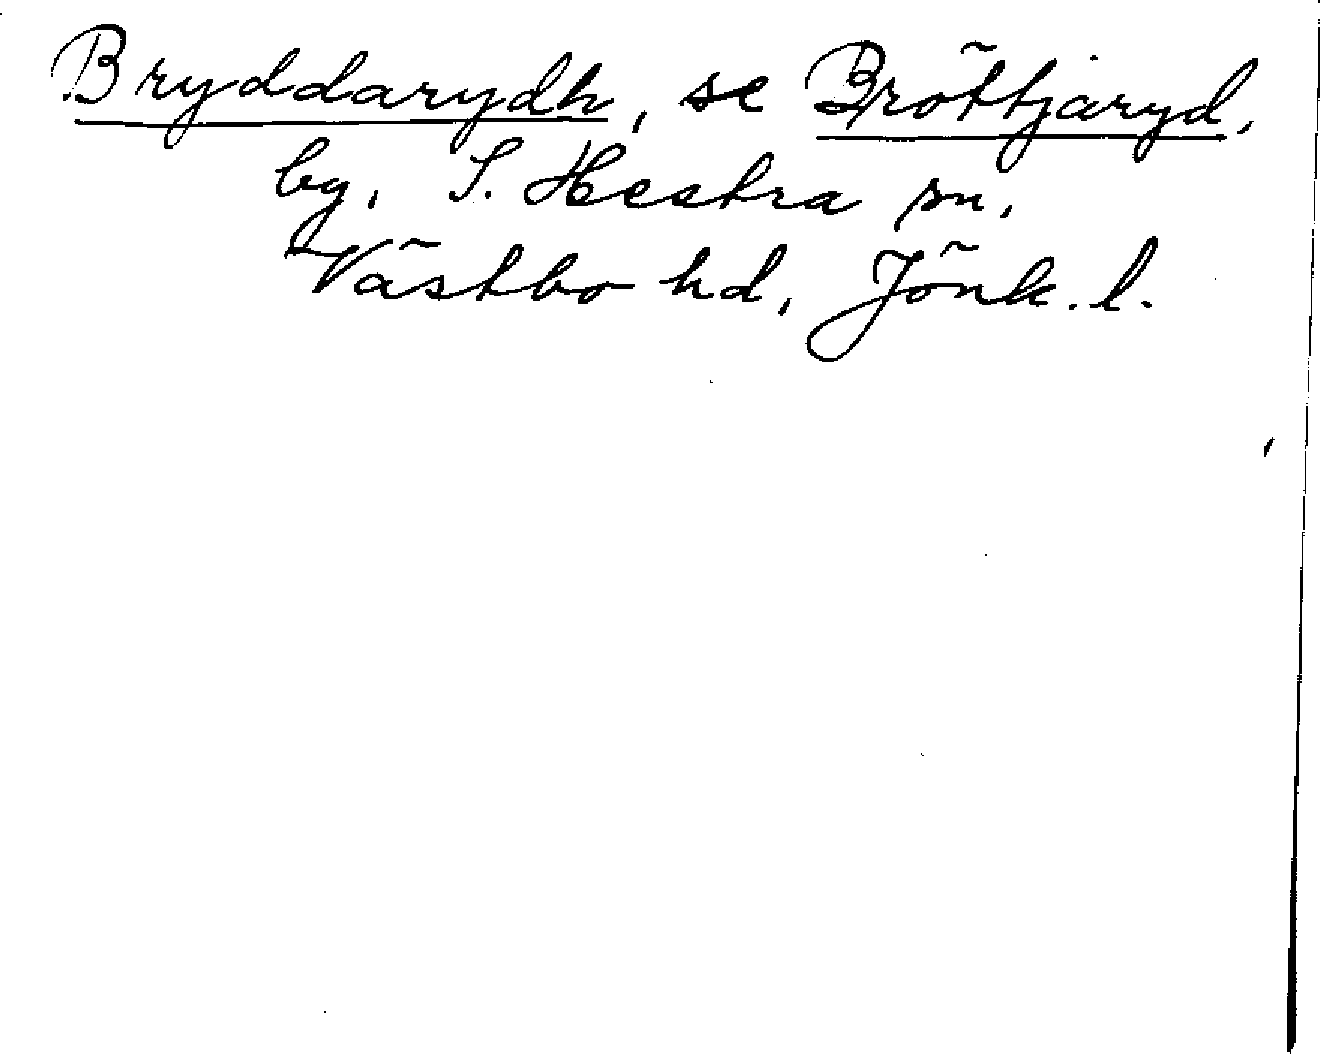 Bryddarydh, se Bröttjaryd,
by, S. Hestra sn,
Västbo hd, Jönk. l.